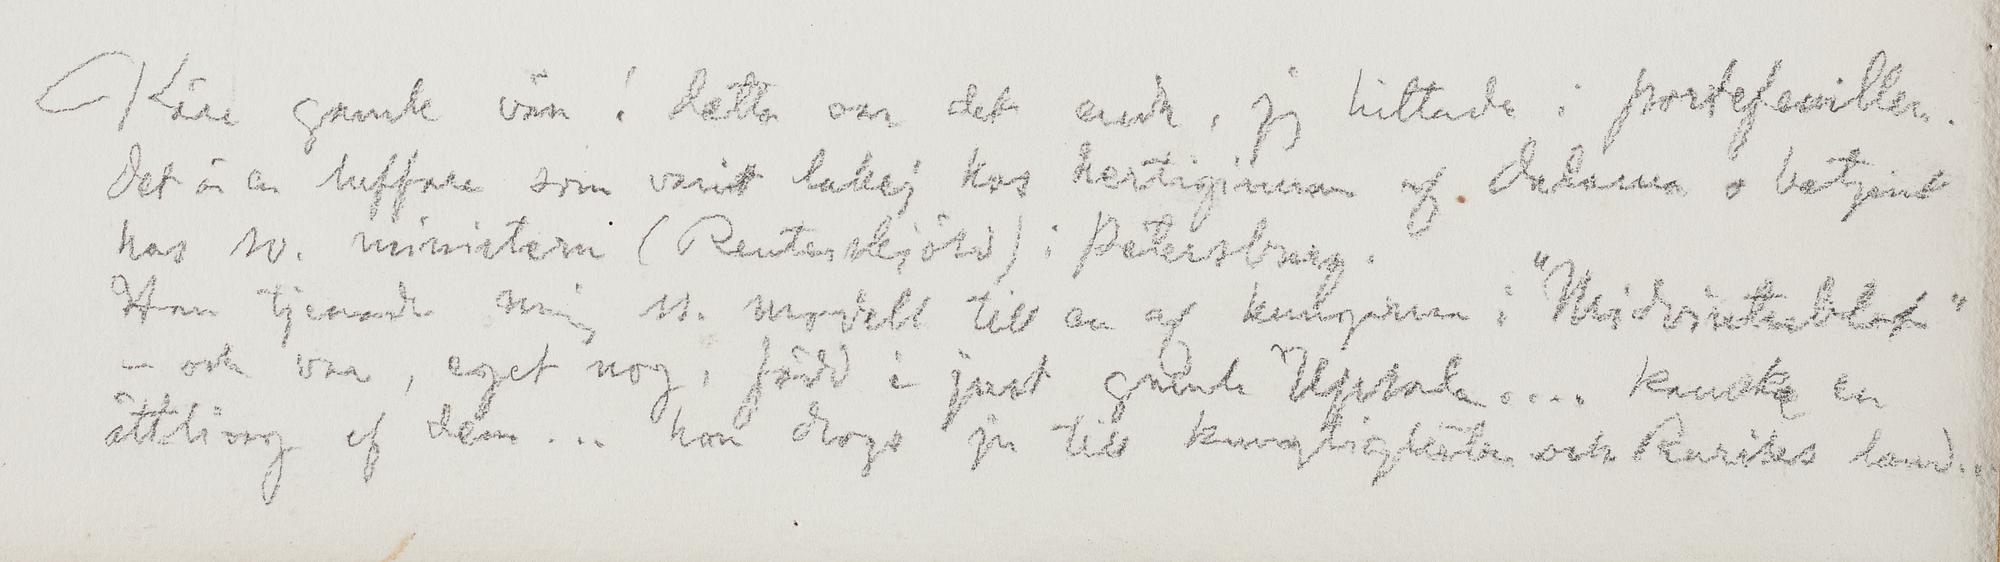 Käre gamle vän! detta var det enda, jag hittade i portefeuillen.
Det är en luffare som varit lakej hos hertiginnan af Dalarna o betjent
hos sv. ministern (Reuterskjöld) i Petersburg.
Han tjenade mig ss. modell till en af kungarna i "Midvinterblot"
– och var, eget nog, född i just gamla Upsala.... kanske en
ättling af dem... han drogs ju till kungligheten och Ruriks land...